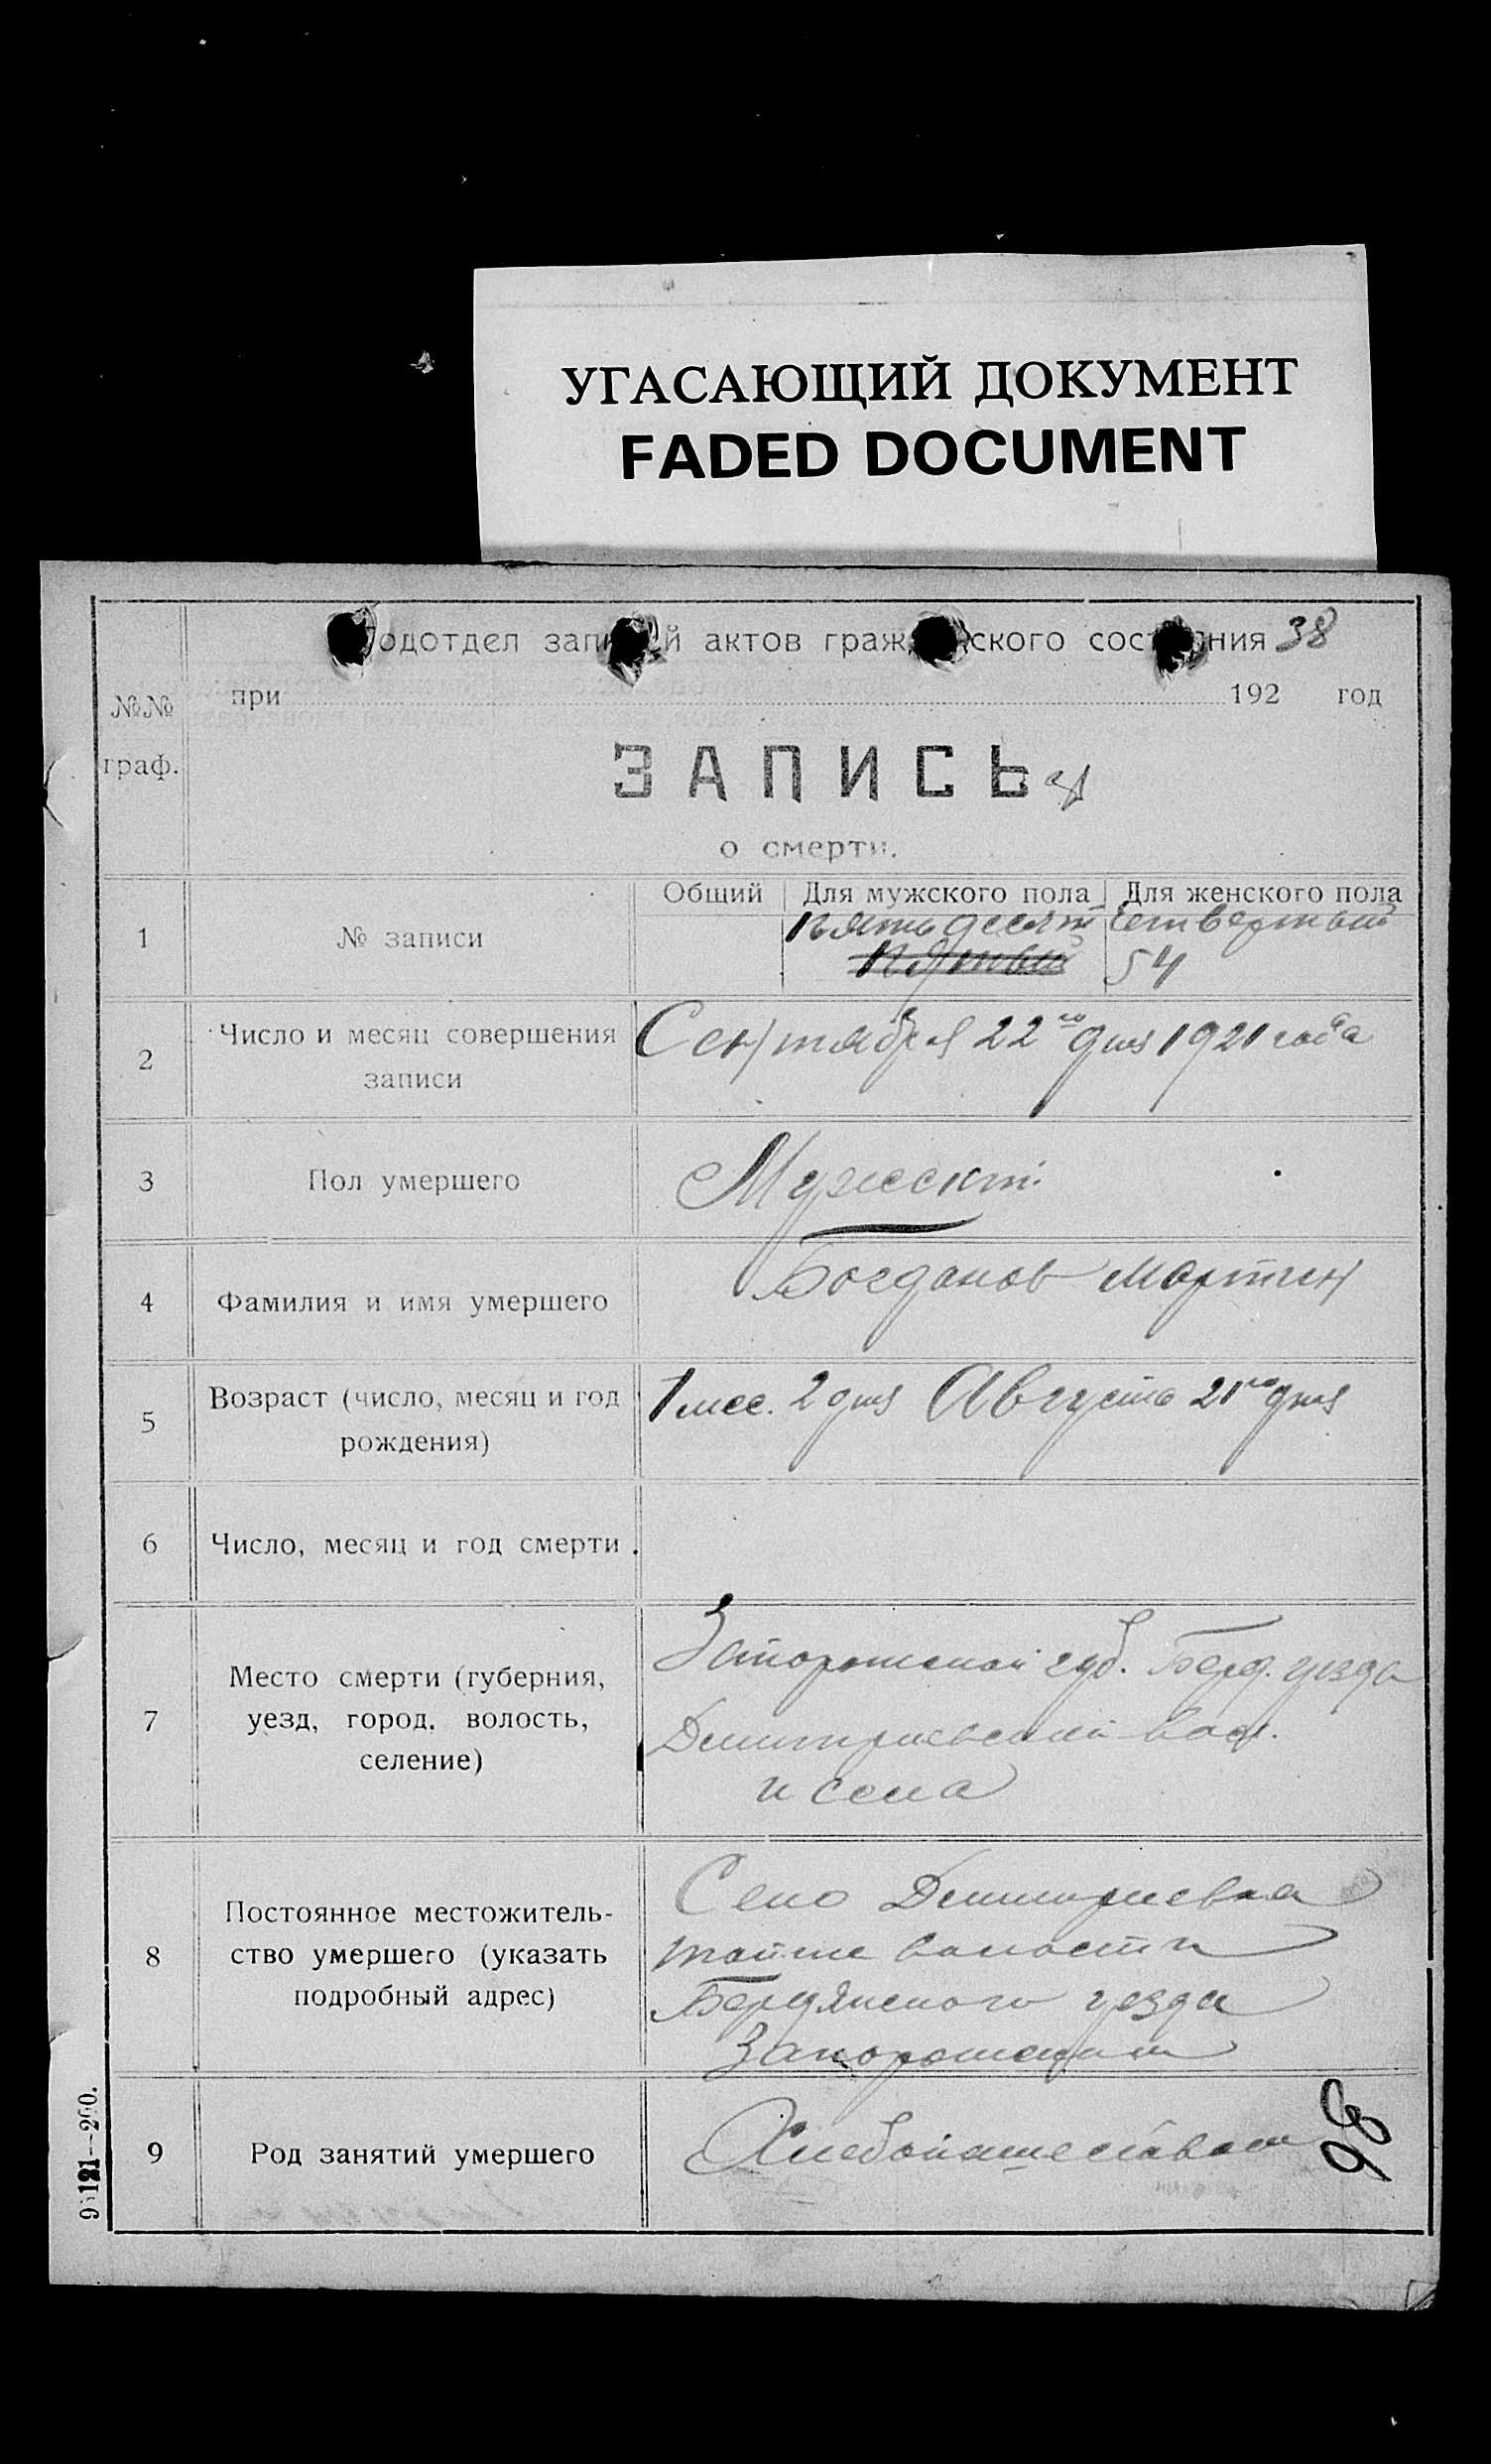 УГАСАЮЩИЙ ДОКУМЕНТ
FADED DOCUMENT
одотдел зап й актов граж ского сос ния 38
№№ граф.
при 192 год
ЗАПИСЬ
о смерти.
Общий Для мужского пола Для женского пола
1 № записи Пятьдесят четвертый
пятый 54
2 Число и месяц совершения записи
Сентября 22го дня 1921 года
3 Пол умершего
Мужеский
4 Фамилия и имя умершего
Богданов Мартин
5 Возраст (число, месяц и год рождения)
1 мес. 2 дня Августа 21го дня
6 Число, месяц и год смерти
7 Место смерти (губерния, уезд, город, волость, селение)
Запорожской губ. Берд. уезда
Димитриевской вол.
и села
8 Постоянное местожитель-
ство умершего (указать
подробный адрес)
Село Димитриевка
тойже волости
Бердянского уезда
9 Род занятий умершего
98